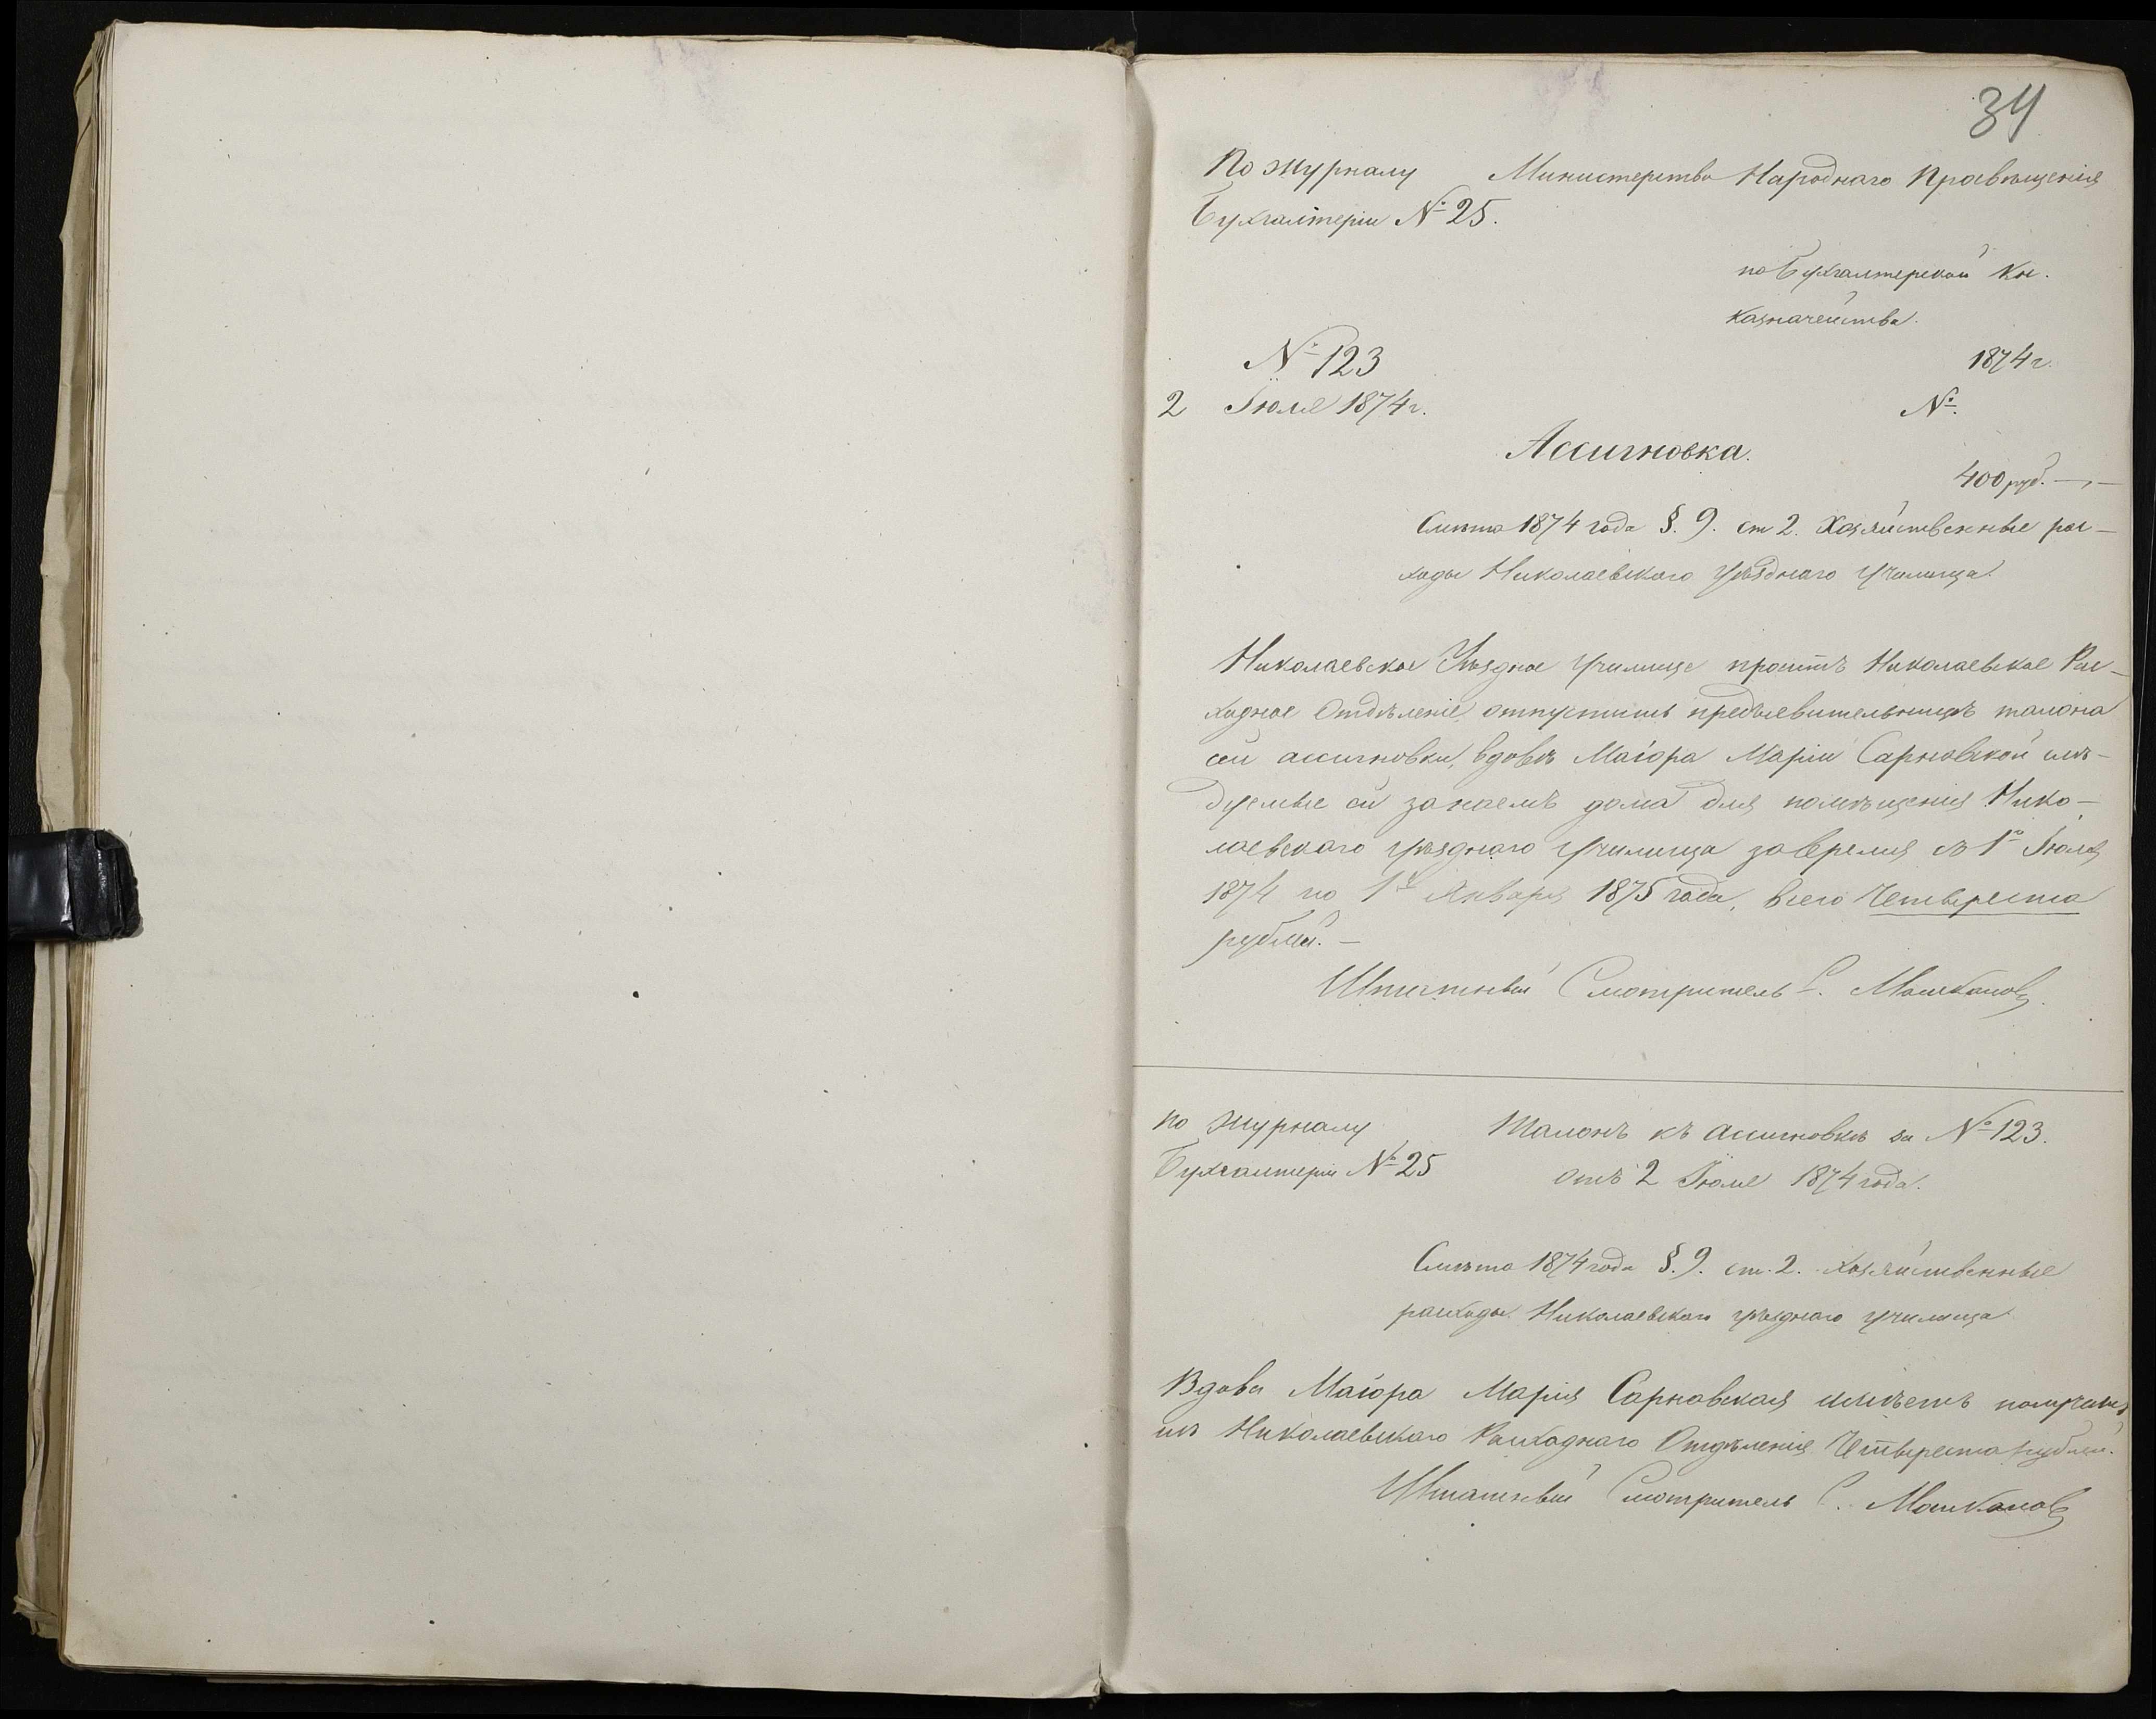 34
По журналу Министерство Народнаго Просвѣщенія
Бухгалтеріи № 25.
по Бухгалтерской Кн.
Казначейства.
№ 123 1874 г.
2 Іюля 1874 г. №.
Ассигновка.
400 руб. —,—
Смѣта 1874 года §. 9. ст 2. Хозяйственные рас-
ходы Николаевского Уѣзднаго Училища.
Николаевское Уѣздное Училище проситъ Николаевское Рас-
ходное Отдѣленіе отпустить предъявительницѣ талона
сей ассигновки, вдовѣ Маіора Маріи Сарновской слѣ-
дуемые ей за наемъ дома для помѣщенія Нико-
лаевскаго уѣзднаго Училища за время съ 1го Іюля
1874 по 1е Января 1875 года, всего Четвереста
рублей. —
Штатный Смотритель С. Машкановъ.
По журналу Талонъ къ Ассигновкѣ за № 123.
Бухгалтеріи № 25 отъ 2 Іюля 1874 года.
Смѣта 1874 года §. 9. ст. 2. Хозяйственные
расходы Николаевскаго уѣзднаго училища.
Вдова Маіора Марія Сарновская имѣетъ получить
изъ Николаевскаго Расходнаго Отдѣленія Четвереста рублей.
Штатный Смотритель С. Машкановъ